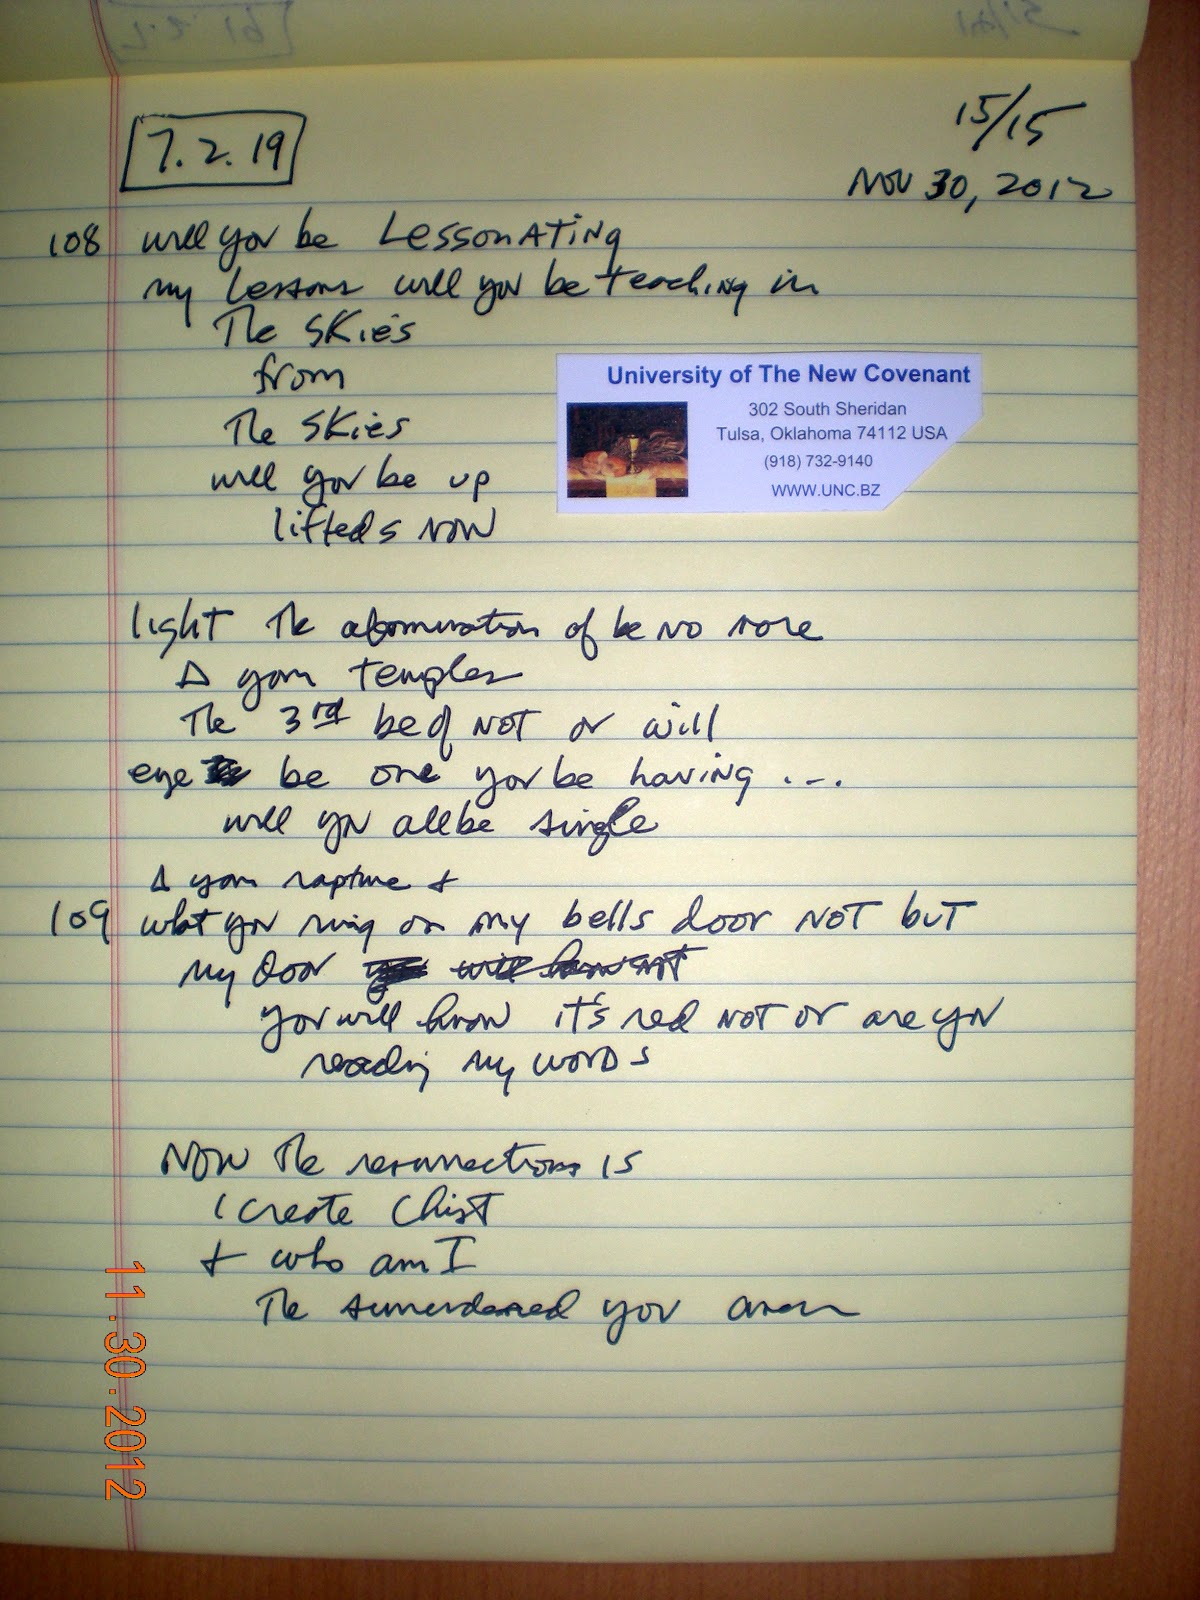 7.2.19
15/15
NOV 30, 2012
108 will you be LessonATiNg
my Lessons will you be teaching in
The SKies
from
The SKies
will you be up
lifteds NOW
University of The New Covenant
302 South Sheridan
Tulsa, Oklahoma 74112 USA
(918) 732-9140
WWW.UNC.BZ
light The abomination of be NO more
Δ your temples
The 3rd be of NOT or will
eye be one you be having ...
will you all be single
Δ your rapture +
109 what you ring on my bells door NOT but
my door
you will know it's red NOT or are you
reading my words
NOW The resurrections is
I create Chist
+ who am I
The you
11.30.2012